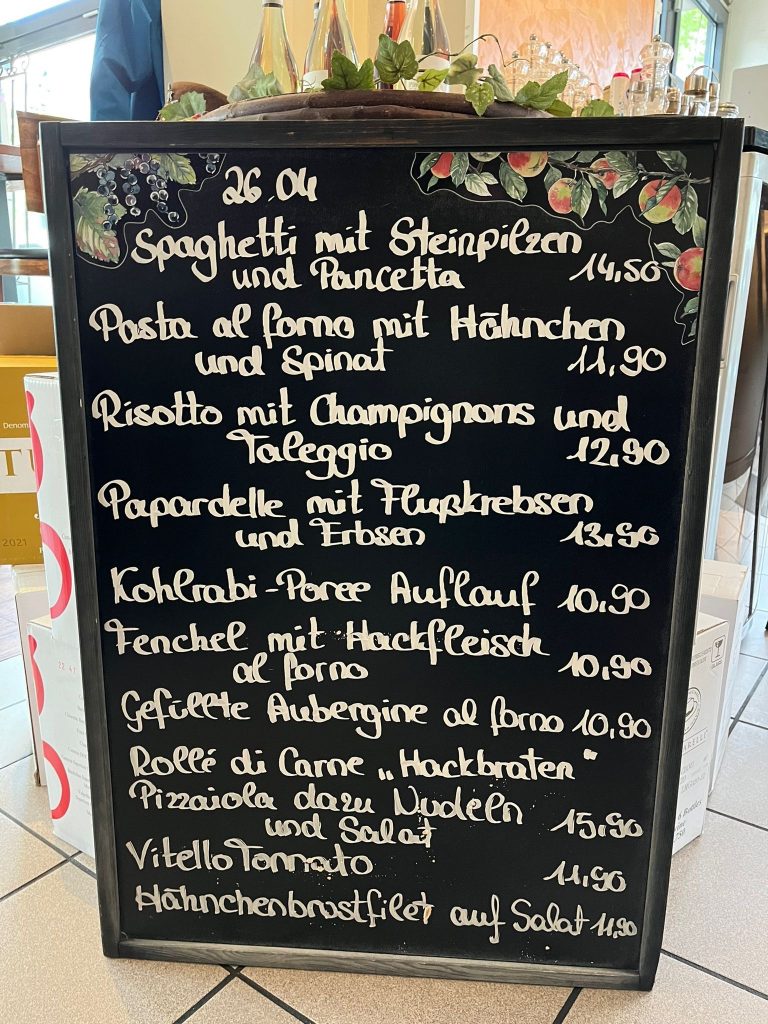 26.04
Spaghetti mit Steinpilzen
und Pancetta 14,50
Pasta al forno mit Hähnchen
und Spinat 11,90
Risotto mit Champignons und
Taleggio 12,90
Papardelle mit Flußkrebsen
und Erbsen 13,90
Kohlrabi-Poree Auflauf 10,90
Fenchel mit Hackfleisch
al forno 10,90
Gefüllte Aubergine al forno 10,90
Rollé di Carne „Hackbraten“
Pizzaiola dazu Nudeln
und Salat 15,90
Vitello Tonnato 11,90
Hähnchenbrustfilet auf Salat 11,90
Denom
2021